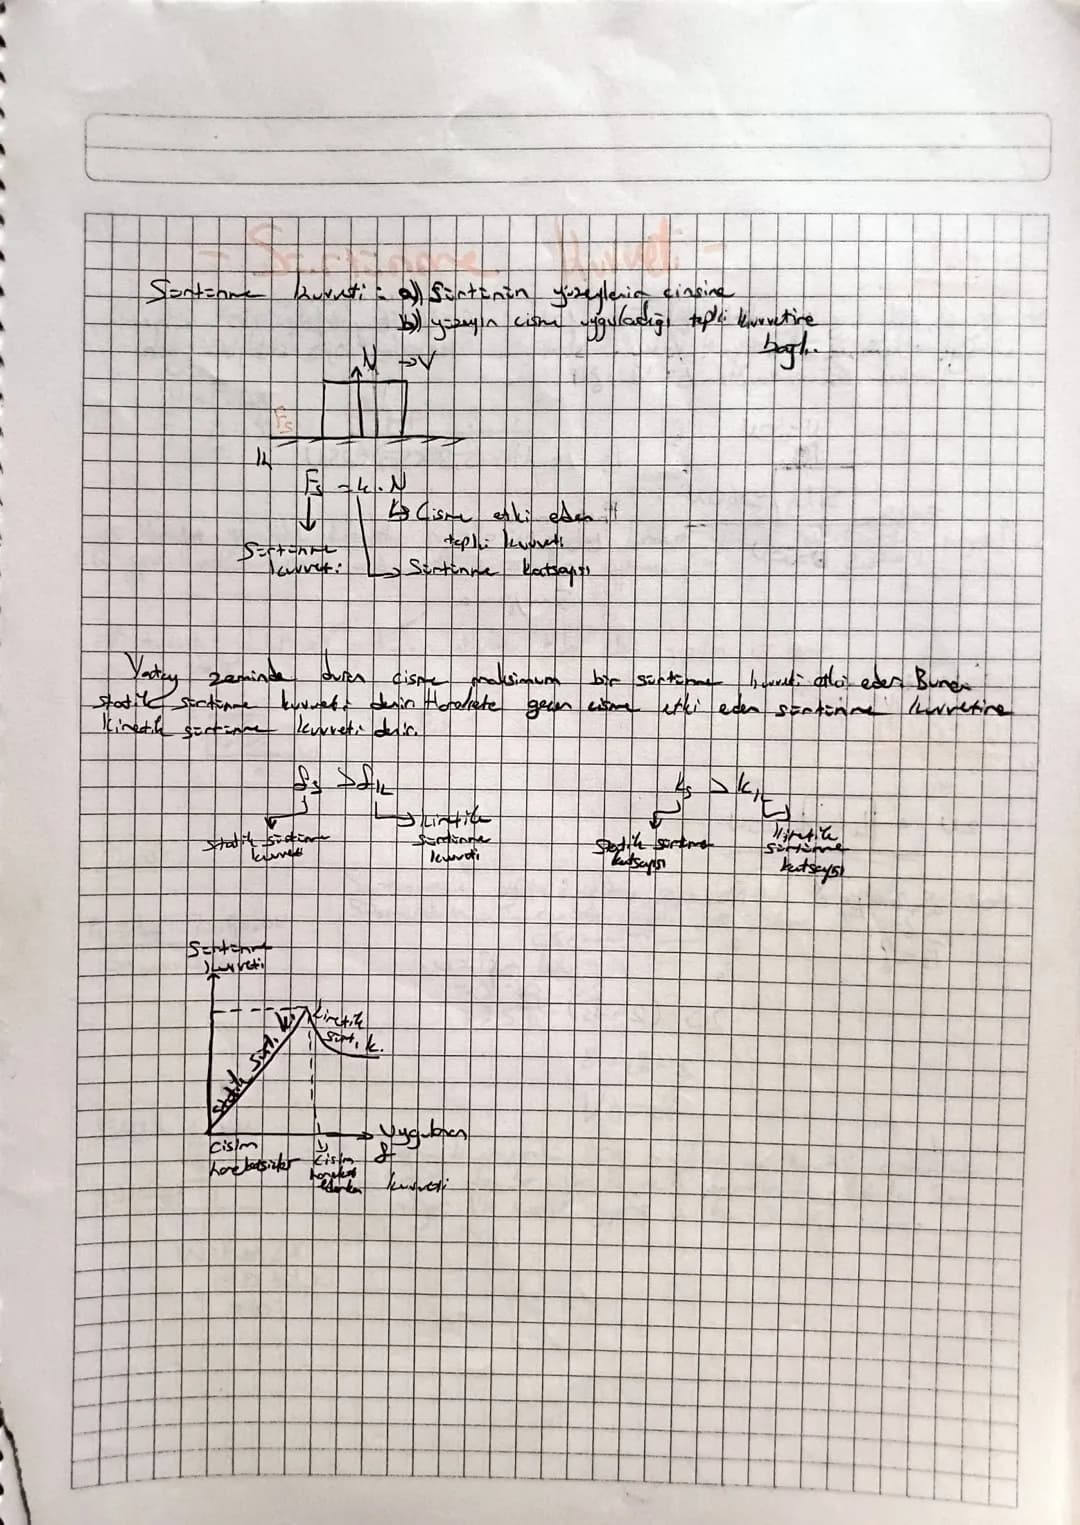 - Sürtünme Kuvveti -
Sürtünme kuvveti : a)) Sürtünen yüzeylerin cinsine
b)) yüzeyin cisme uyguladığı tepki kuvvetine
bağlı.
N → V
Fs
Fs = k . N
↳ Cisme etki eden
tepki kuvveti
Sürtünme
kuvveti
→ Sürtünme katsayısı
Yatay zeminde duran cisme maksimum bir sürtünme kuvveti etki eder. Buna
statik sürtünme kuvveti denir Harekete geçen cisme etki eden sürtünme kuvvetine
kinetik sürtünme kuvveti denir.
fs > fk
ks > kk
statik sürtünme
kuvveti
kinetik
sürtünme
kuvveti
Statik sürtünme
katsayısı
kinetik
sürtünme
katsayısı
Sürtünme
kuvveti
Statik Sürt. k.
Kinetik
Sürt. k.
Uygulanan
f
kuvveti
Cisim
hareketsizler
Cisim
hareket
ederken